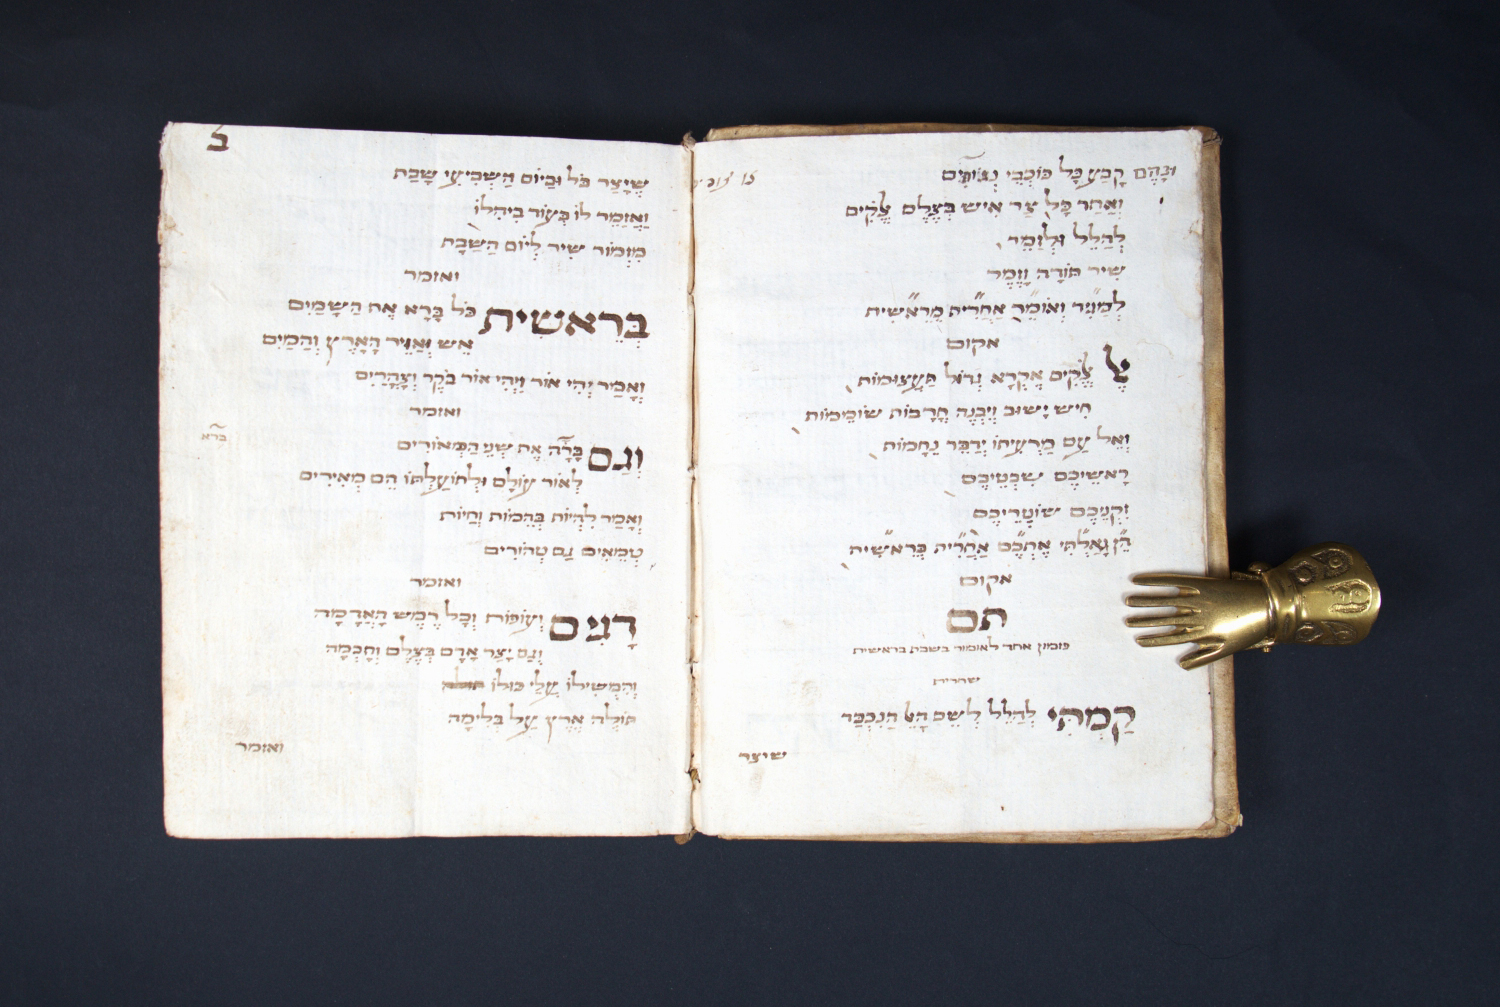 ובהם קבע כל כוכבי
ואחר כל צר איש בצלם אלקים
להלל ולזמר
שיר תודה וזמר
למגיד ואומר אחרית מראשית
אקום
אל אלקים אקרא גדול תעצומות
חיש ישוב ויבנה חרבות שוממות
ואל עם מרעיתו ידבר נחמות
ראשיכם שבטיכם
זקניכם שוטריכם
הן גאלתי אתכם אחרית כראשית
אקום
תם
פזמון אחר לאומרו בשבת בראשית
שחרית
קמתי להלל לשם האל הנכבד
שיצר
ב
שיצר כל וביום השביעי שבת
ואזמר לו בעוד
מזמור שיר ליום השבת
ואומר
בראשית כל ברא את השמים
אש ואויר הארץ והמים
ואמר יהי אור ויהי אור בקר וצהרים
ואומר
וגם ברה את שני המאורים
ברא
לאור עולם ולתועלתו הם מאירים
ואמר להיות בהמות וחיות
טמאים גם טהורים
ואומר
דגים ועופות וכל רמש האדמה
וגם יצר אדם בצלם וחכמה
והמשילו עלי כולו
תולה ארץ על בלימה
ואומר